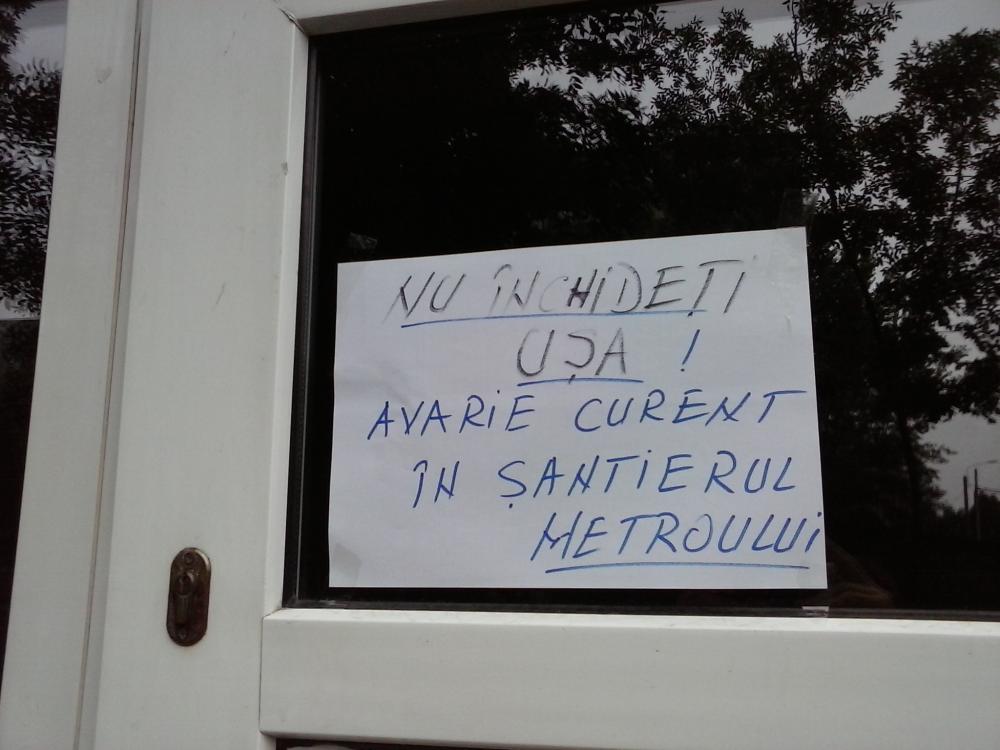 NU ÎNCHIDEȚI
UȘA !
AVARIE CURENT
ÎN ȘANTIERUL
METROULUI